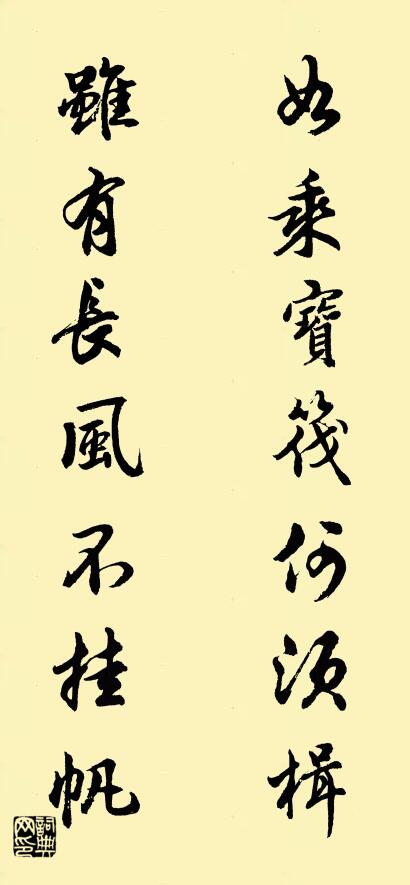 如乘寶筏何須楫
雖有長風不挂帆
詞典网印